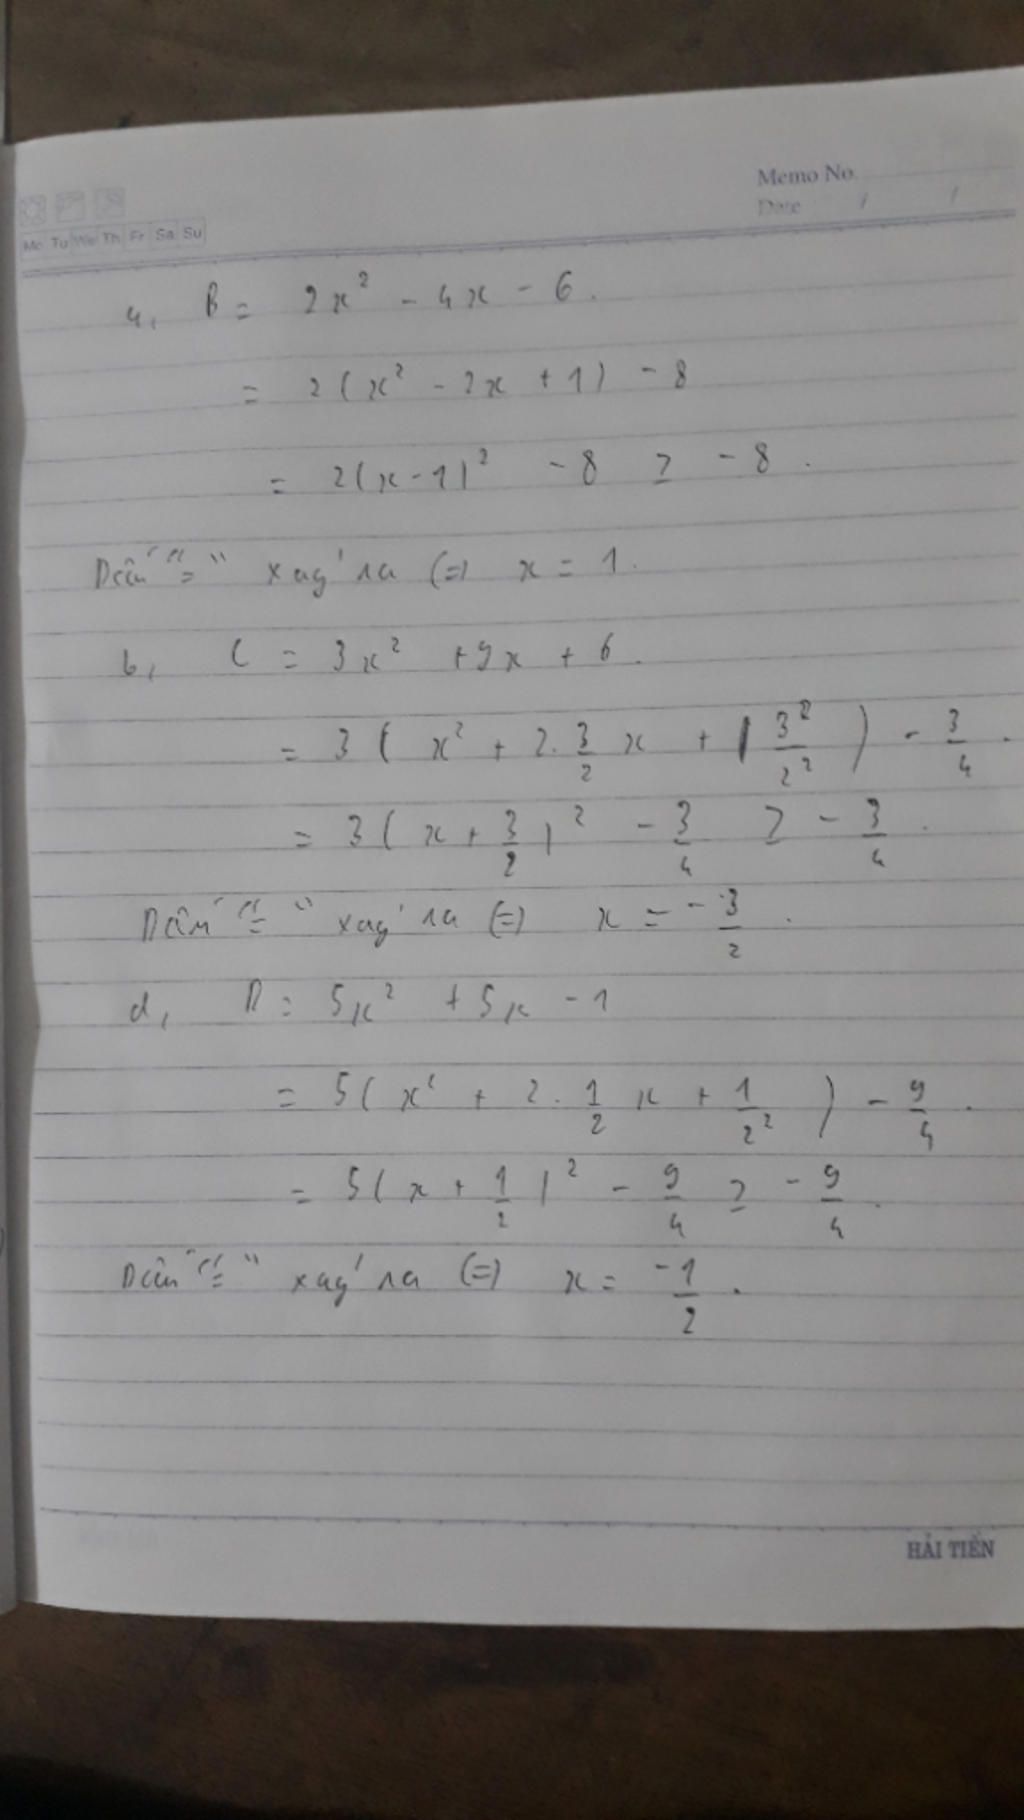 Memo No.
Date / /
Mo Tu We Th Fr Sa Su
a, B = 2x² - 4x - 6.
= 2(x² - 2x + 1) - 8
= 2(x-1)² - 8 ≥ - 8.
Dấu "=" xảy ra (=) x = 1.
b, C = 3x² + 9x + 6.
= 3(x² + 2.3/2 x + 3²/2²) - 3/4.
= 3(x + 3/2)² - 3/4 ≥ - 3/4.
Dấu "=" xảy ra (=) x = -3/2.
d, D = 5x² + 5x - 1
= 5(x² + 2.1/2 x + 1/2²) - 9/4.
= 5(x + 1/2)² - 9/4 ≥ - 9/4.
Dấu "=" xảy ra (=) x = -1/2.
HẢI TIẾN